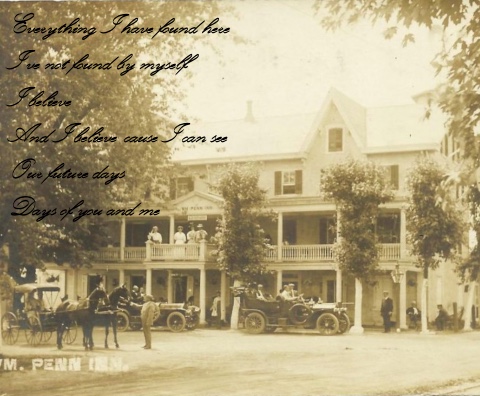 Everything I have found here
I've not found by myself
I believe
And I believe cause I can see
Our future days
Days of you and me
WM. PENN INN
WM. PENN INN.